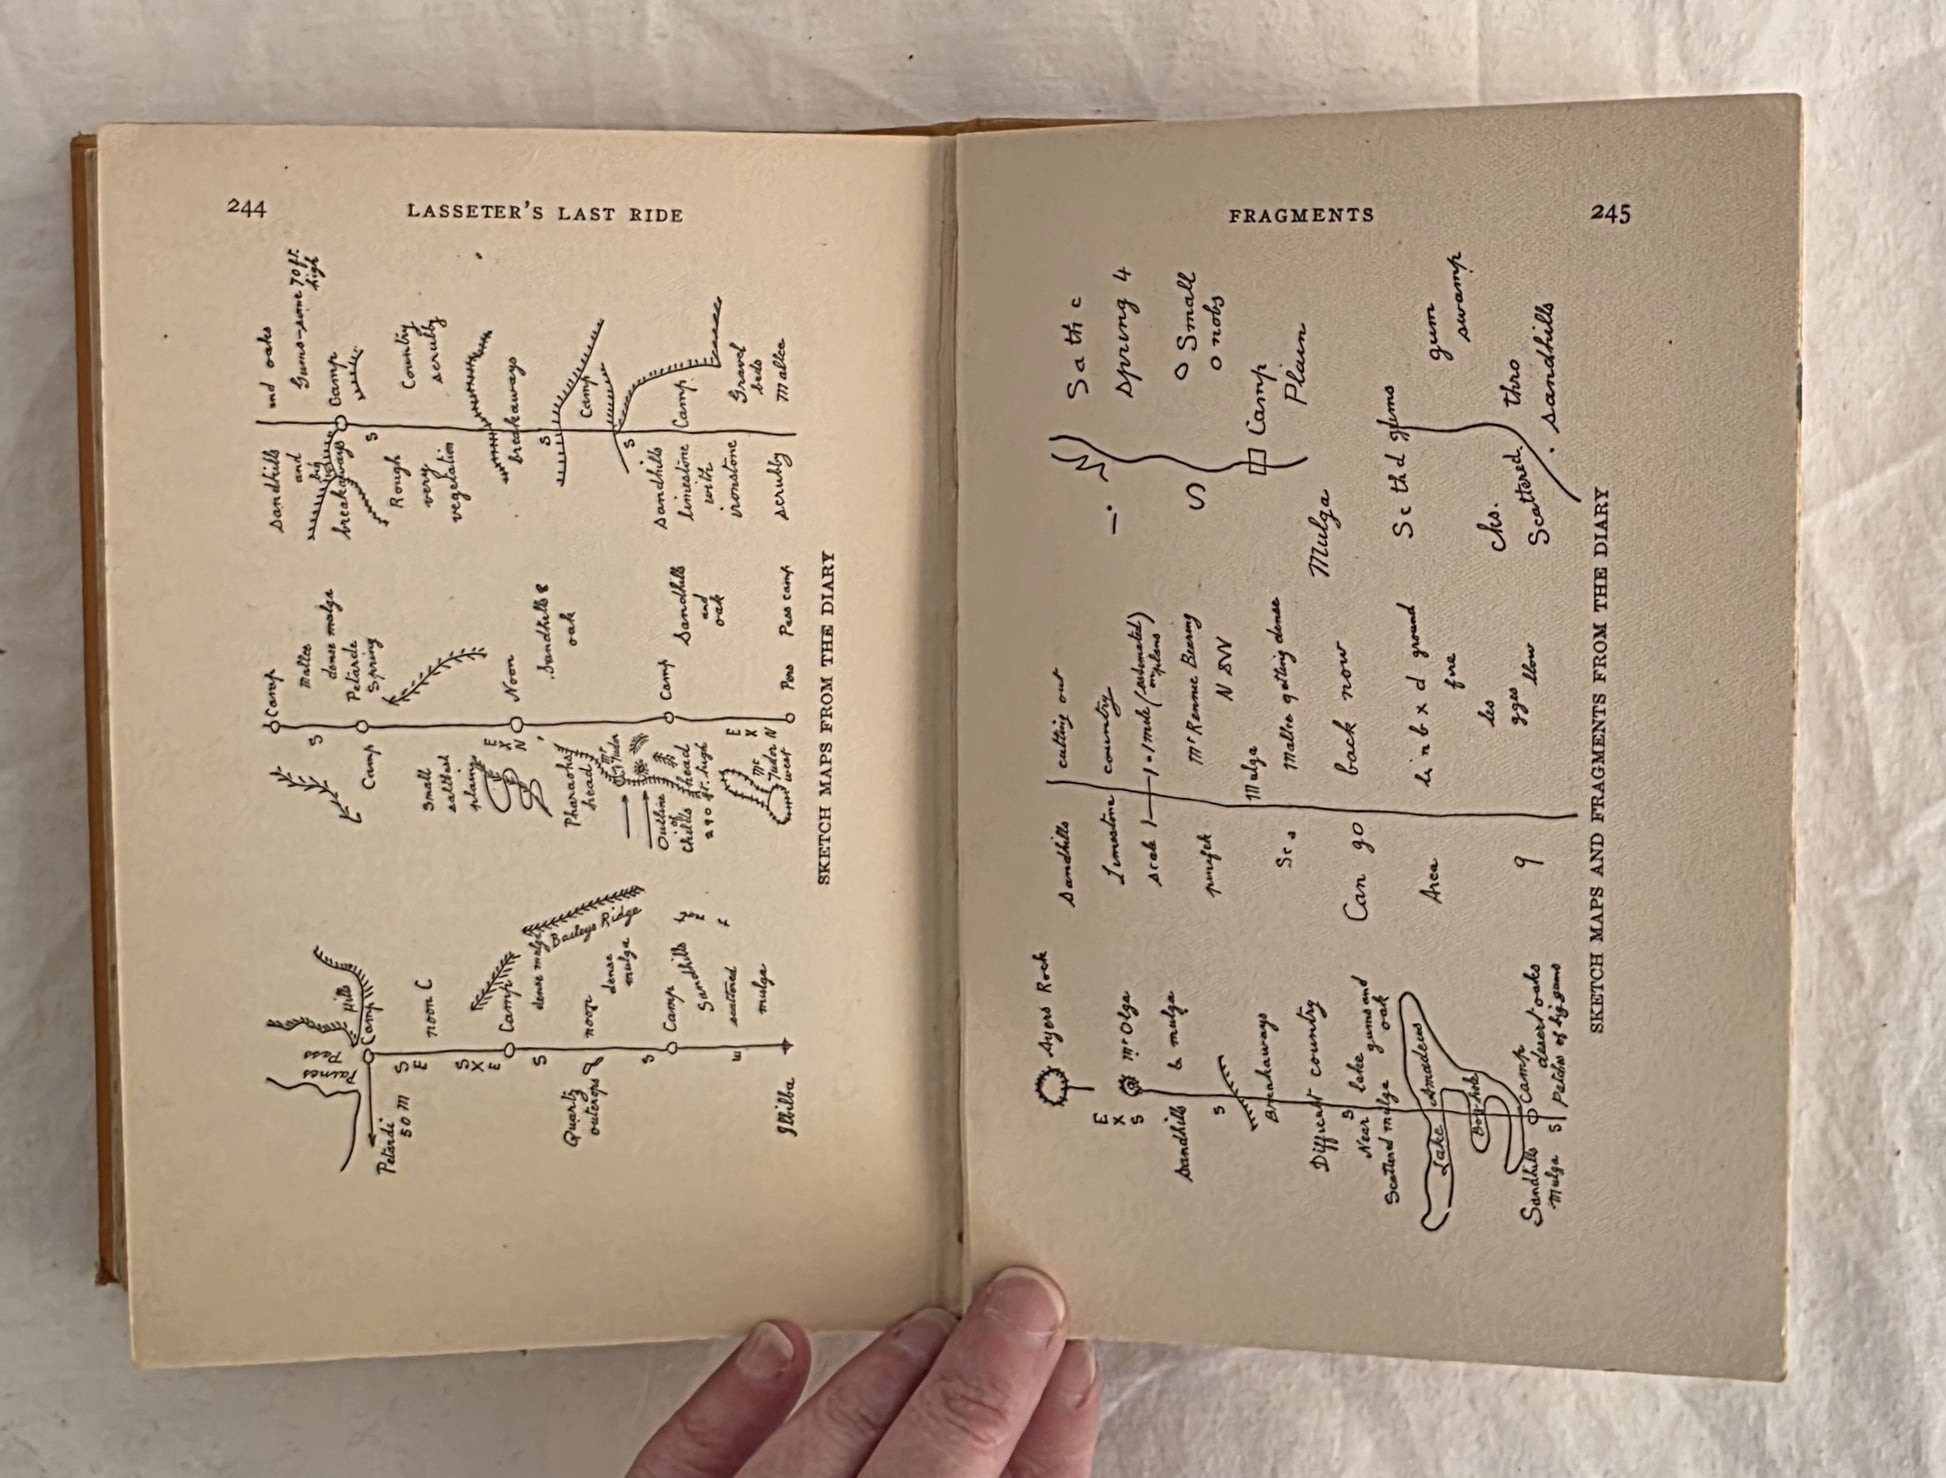 244
LASSETER'S LAST RIDE
Paines
Pass
Hills
Camp
Petardi
50 M
S
E
noon C
S
X
E
Camp
S
dense mulga
Baileys Ridge
Quartz
outcrops
noon
dense
mulga
S
Camp
Sandhills
scattered
mulga
E
Ilbilba
Camp
S
Mallee
dense mulga
Petarde
Spring
Camp
Small
saltbush
plains
E
X
N
Noon
Sandhills &
oak
Pharaohs
head
Mt
Tudor
Outline
of
Childs head
290 ft. high
Camp
Sandhills
and
oak
E
X
N
Mt
Tudor
west
Pass
Pass camp
and oaks
Gums-some 70 ft.
high
Sandhills
and
big
breakaways
Camp
S
Country
scrubby
Rough
very
vegetation
breakaways
S
Camp
S
Sandhills
limestone
with
ironstone
Camp
Gravel
beds
scrubby
Mallee
SKETCH MAPS FROM THE DIARY
FRAGMENTS
245
Ayers Rock
E
X
S
Mt Olga
Sandhills & mulga
S
Breakaways
Difficult country
S
Near lake gums and
Scattered mulga oak
Lake Amadeus
Bog hole
Camp
Sandhills desert oaks
Mulga S Patches of big gums
Sandhills
cutting out
Limestone country
Scale 1 — 1 = 1 mile (estimated)
on plans
Mt Rennie Bearing
N SW
Mulga
Mallee getting dense
Can go back now
Area
li n b x d ground
fire
les
gges llow
9
S a th c
Spring 4
O Small
O nobs
S
Camp
Plain
Mulga
Sc th d gums
gum
swamp
cks.
Scattered
thro
sandhills
SKETCH MAPS AND FRAGMENTS FROM THE DIARY